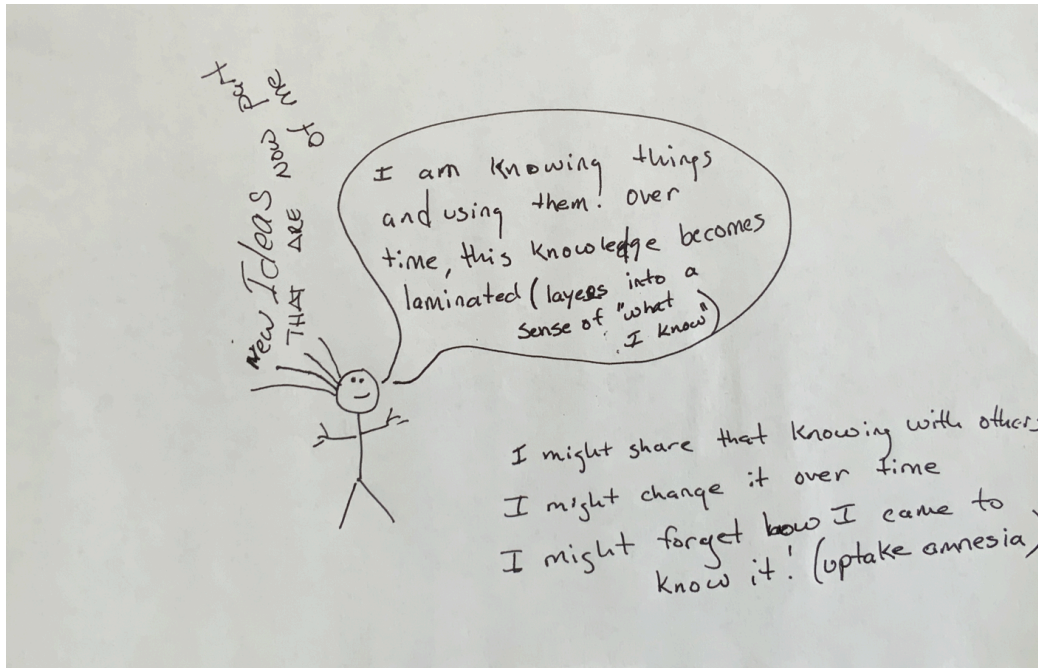 New Ideas
THAT ARE now part
of me
I am knowing things
and using them! over
time, this knowledge becomes
laminated (layers into a
sense of "what
I know")
I might share that knowing with others
I might change it over time
I might forget how I came to
know it! (uptake amnesia)